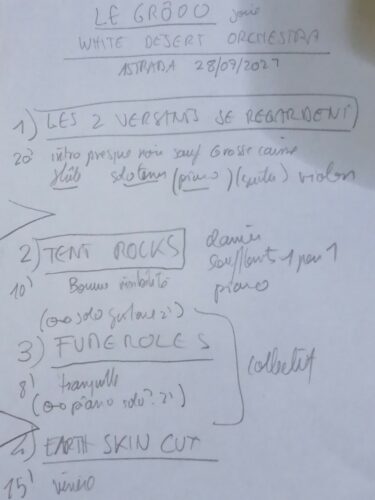 LE GRÔDO joue
WHITE DESERT ORCHESTRA
ASTRADA 28/07/2021
1) LES 2 VERSANTS SE REGARDENT
20' intro presque noir sauf Grosse caisse
flûte solo tenor (piano) (suite) violon
2) TENT ROCKS
10' Bonne visibilité
soufflants 1 par 1
piano
(solo guitare 2')
3) FUMEROLES
8' tranquille
(piano solo? 2')
collectif
4) EARTH SKIN CUT
15' vénéro